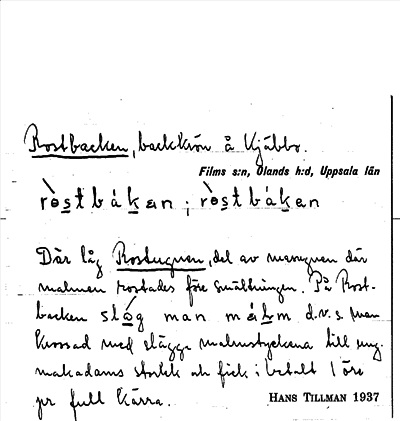 Rostbacken, backkrön å Kjäbbo.
Films s:n, Olands h:d, Uppsala län
ròstbákan ; ròstbákan
Där låg Rostugnen, del av masugnen där
malmen rostades före smältningen. På Rost-
backen slóg man málm d.v.s. man
krossad med slägga malmstyckena till ung.
makadams storlek och fick i betalt 1 öre
pr full kärra.
HANS TILLMAN 1937